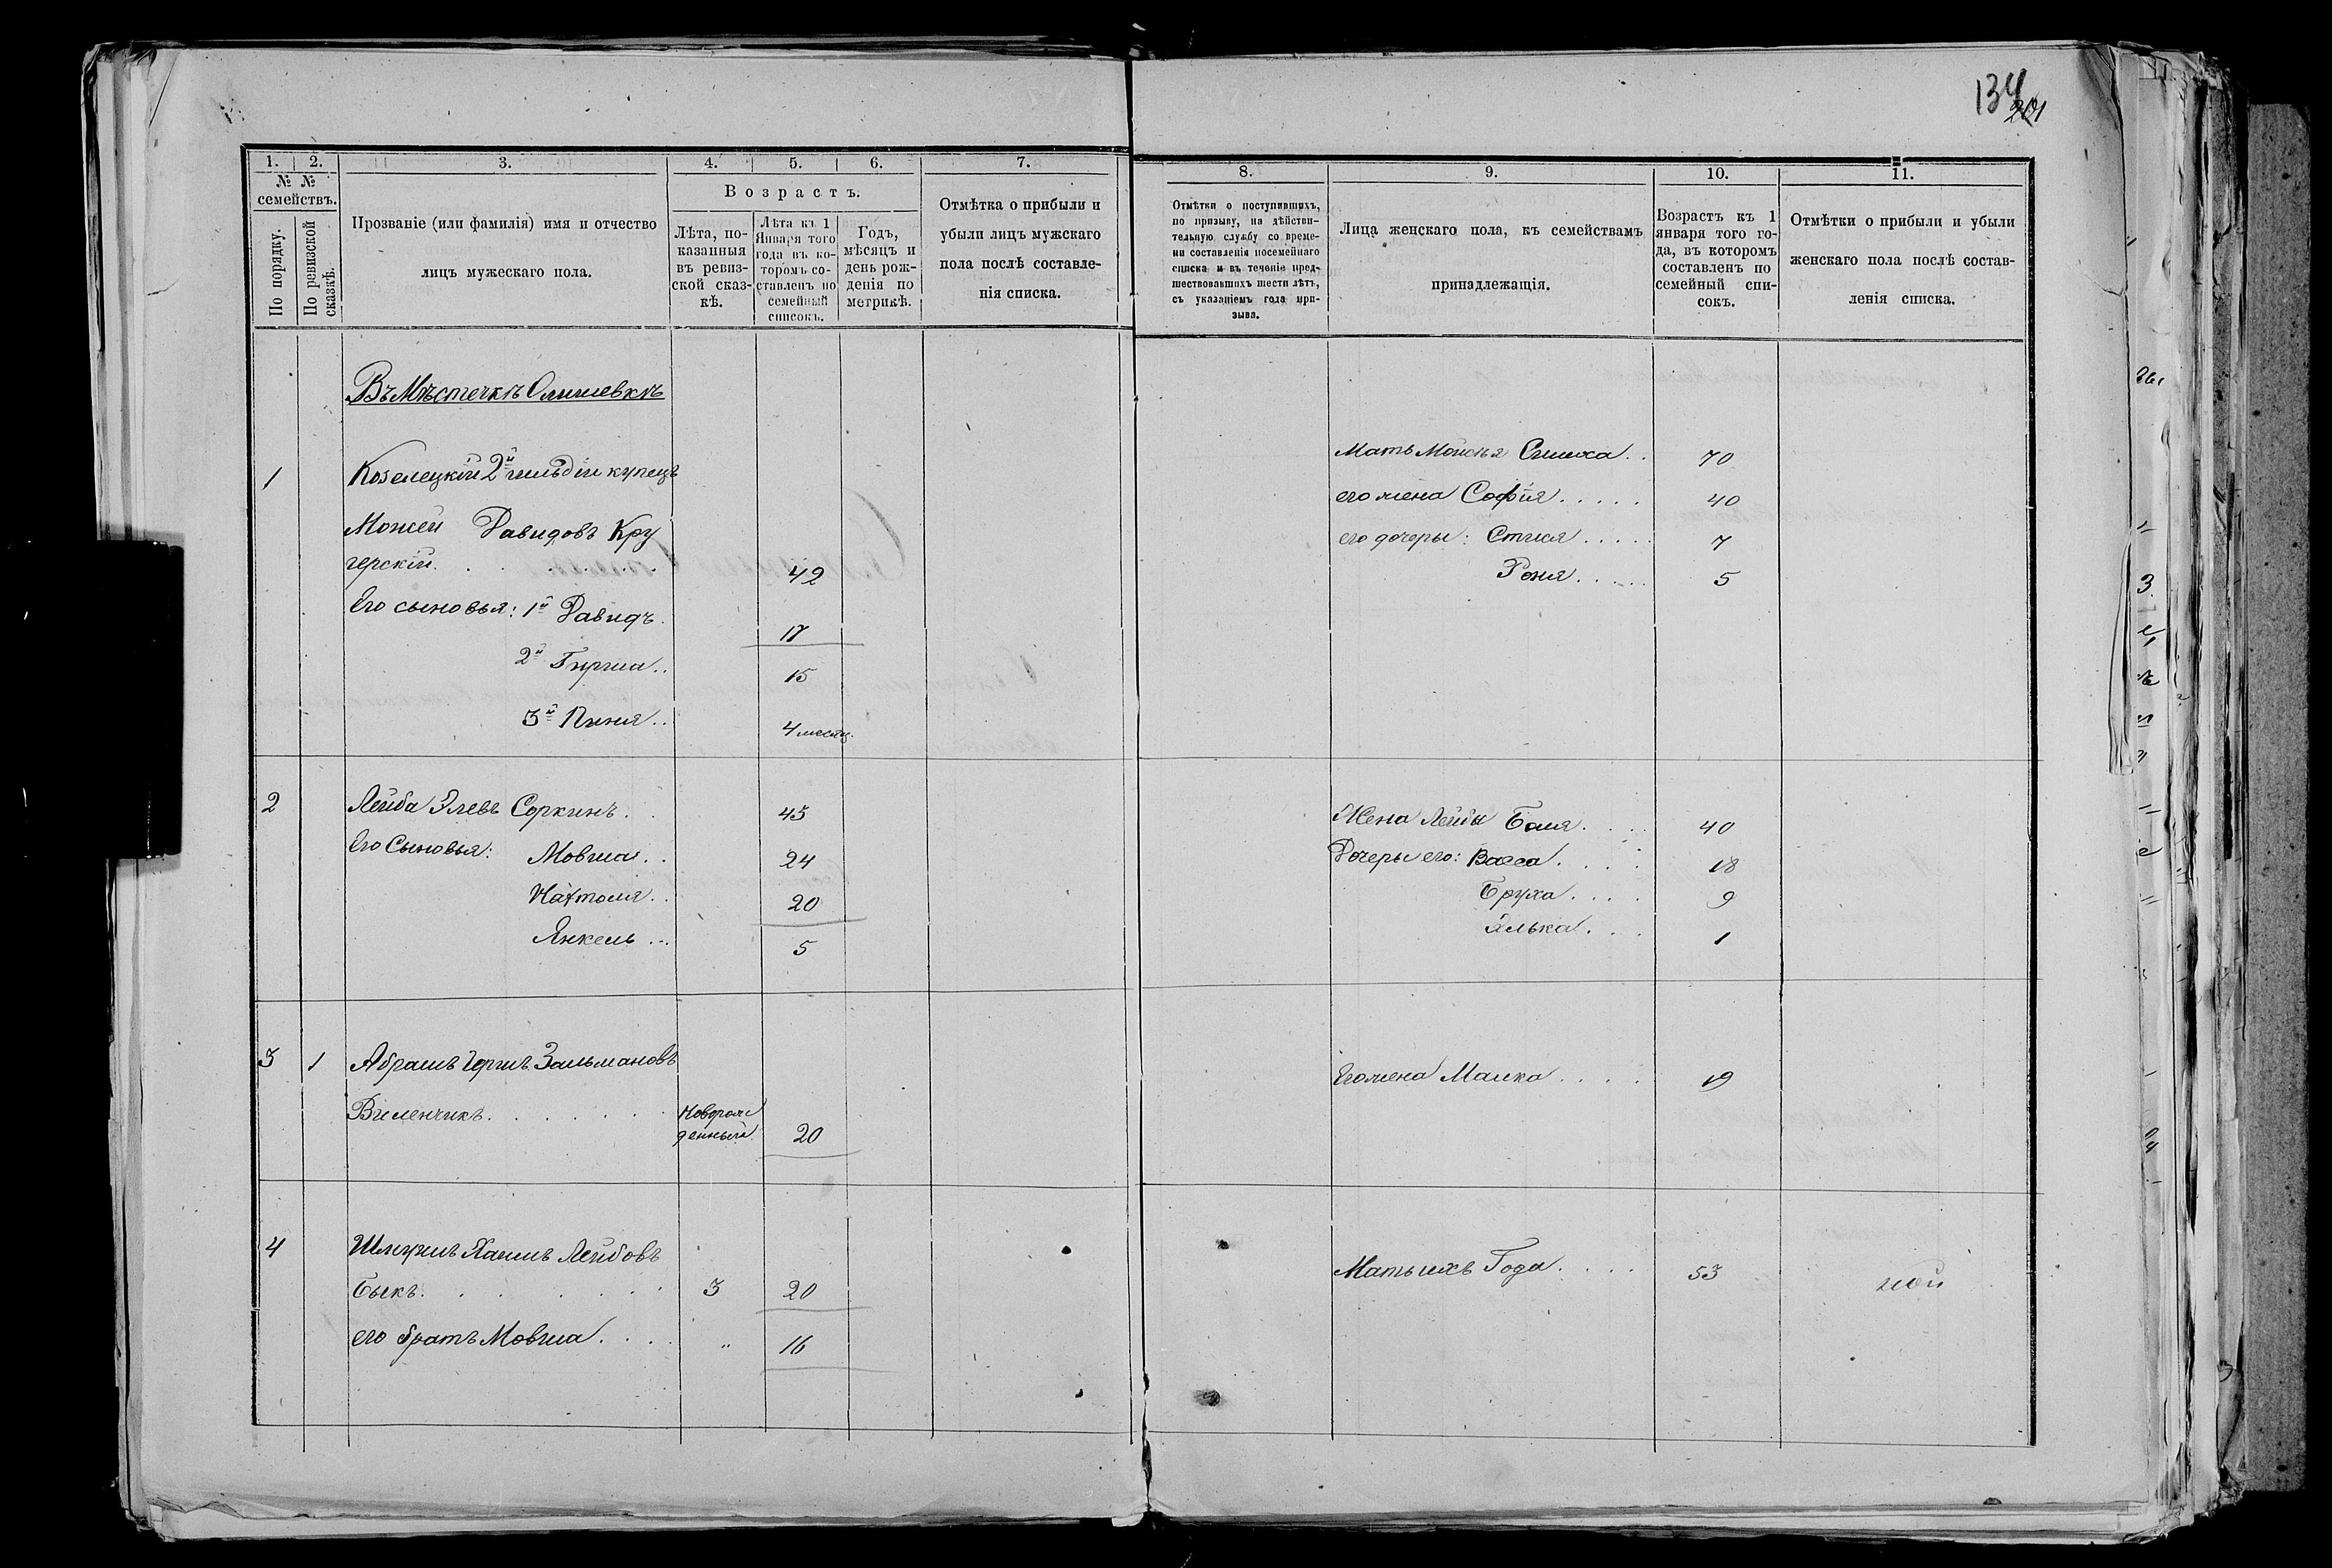 134
201
1. 2. 3. 4. 5. 6. 7.
№ № семействъ.
По порядку.
По ревизской сказкѣ.
Прозваніе (или фамилія) имя и отчество
лицъ мужескаго пола.
Возрастъ.
Лѣта, по-
казанныя
въ ревиз-
ской сказ-
кѣ.
Лѣта къ 1
Января того
года въ ко-
торомъ со-
ставленъ по
семейный
списокъ.
Годъ,
мѣсяцъ и
день рож-
денія по
метрикѣ.
Отмѣтка о прибыли и
убыли лицъ мужскаго
пола послѣ составле-
нія списка.
8. 9. 10. 11.
Отмѣтки о поступившихъ,
по призыву, на дѣйстви-
тельную службу со време-
ни составленія посемейнаго
списка и въ теченіе пред-
шествовавшихъ шести лѣтъ,
съ указаніемъ года при-
зыва.
Лица женскаго пола, къ семействамъ
принадлежащія.
Возрастъ къ 1
января того го-
да, въ которомъ
составленъ по
семейный спи-
сокъ.
Отмѣтки о прибыли и убыли
женскаго пола послѣ состав-
ленія списка.
Въ Мѣстечкѣ Олишевкѣ
1 Козелецкій 2й гильдіи купецъ
Мовшей Давидовъ Кру
герскій 42
Его сыновья: 1й Давидъ 17
2й Гирша 15
3й Пиня 4 месяц.
Мать Мойсѣя Симха 70
его жена Софія 40
его дочеры: Стися 7
Роня 5
2 Лейба Элевъ Соркинъ 45
Его Сыновья: Мовша 24
Нахтоля 20
Янкель 5
Жена Лейбы Бася 40
Дочеры его: Васса 18
Бруха 9
Элька 1
3 1 Абрамъ Гершъ Зальмановъ
Виленчикъ Новорож
денный 20
Его жена Малка 19
4 Шмуилъ Хаимъ Лейбовъ
Быкъ 3 20
его братъ Мовша " 16
Мать ихъ Года 53